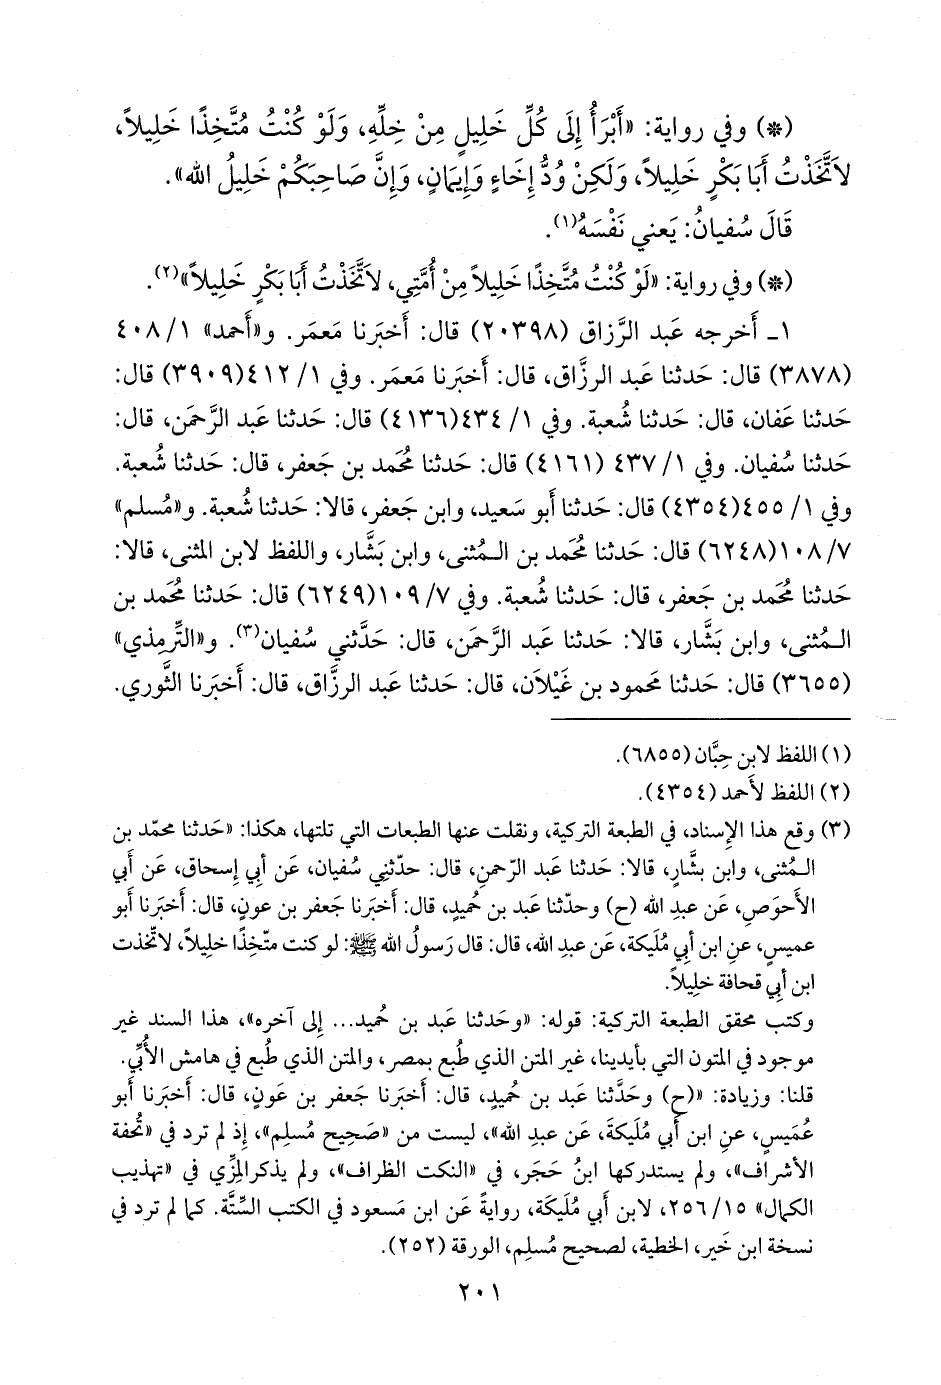 (*) وفي رواية: «أَبْرَأُ إِلَى كُلِّ خَلِيلٍ مِنْ خِلِّهِ، وَلَوْ كُنْتُ مُتَّخِذًا خَلِيلاً،
لاَتَّخَذْتُ أَبَا بَكْرٍ خَلِيلاً، وَلَكِنْ وُدُّ إِخَاءٍ وَإِيمَانٍ، وَإِنَّ صَاحِبَكُمْ خَلِيلُ الله».
قَالَ سُفيانُ: يَعني نَفْسَهُ(١).
(*) وفي رواية: «لَوْ كُنْتُ مُتَّخِذًا خَلِيلاً مِنْ أُمَّتِي، لاَتَّخَذْتُ أَبَا بَكْرٍ خَلِيلاً»(٢).
١ـ أَخرجه عَبد الرَّزاق (٢٠٣٩٨) قال: أَخبَرنا مَعمَر. و«أَحمد» ١/ ٤٠٨
(٣٨٧٨) قال: حَدثنا عَبد الرزاق، قال: أَخبَرنا مَعمَر. وفي ١/ ٤١٢(٣٩٠٩) قال:
حَدثنا عَفان، قال: حَدثنا شُعبة. وفي ١/ ٤٣٤(٤١٣٦) قال: حَدثنا عَبد الرَّحمَن، قال:
حَدثنا سُفيان. وفي ١/ ٤٣٧ (٤١٦١) قال: حَدثنا مُحَمد بن جَعفر، قال: حَدثنا شُعبة.
وفي ١/ ٤٥٥(٤٣٥٤) قال: حَدثنا أَبو سَعيد، وابن جَعفر، قالا: حَدثنا شُعبة. و«مُسلم»
٧/ ١٠٨(٦٢٤٨) قال: حَدثنا مُحَمد بن الـمُثنى، وابن بَشَّار، واللفظ لابن المثنى، قالا:
حَدثنا مُحَمد بن جَعفر، قال: حَدثنا شُعبة. وفي ٧/ ١٠٩(٦٢٤٩) قال: حَدثنا مُحَمد بن
الـمُثنى، وابن بَشَّار، قالا: حَدثنا عَبد الرَّحمَن، قال: حَدَّثني سُفيان(٣). و«التِّرمِذي»
(٣٦٥٥) قال: حَدثنا مَحمود بن غَيْلاَن، قال: حَدثنا عَبد الرزَّاق، قال: أَخبَرنا الثَّوري.
(١) اللفظ لابن حِبَّان (٦٨٥٥).
(٢) اللفظ لأَحمد (٤٣٥٤).
(٣) وقع هذا الإِسناد، في الطبعة التركية، ونقلت عنها الطبعات التي تلتها، هكذا: «حَدثنا محمّد بن
الـمُثنى، وابن بشَّارٍ، قالا: حَدثنا عَبد الرّحمنِ، قال: حدّثنِي سُفيان، عَن أَبِي إِسحاق، عَن أَبي
الأَحوَصِ، عَن عبدِ الله (ح) وحدّثنا عَبد بن حُميدٍ، قال: أَخبَرنا جَعفر بن عونٍ، قال: أَخبَرنا أَبو
عميسٍ، عنِ ابن أَبِي مُلَيكة، عَن عبدِ الله، قال: قال رَسولُ الله ﷺ: لو كنت متّخِذًا خلِيلاً، لاتّخذت
ابن أَبِي قحافة خلِيلاً.
وكتب محقق الطبعة التركية: قوله: «وحَدثنا عَبد بن حُميد... إلى آخره»، هذا السند غير
موجود في المتون التي بأيدينا، غير المتن الذي طُبع بمصر، والمتن الذي طُبع في هامش الأُبِّي.
قلنا: وزيادة: «(ح) وحَدَّثنا عَبد بن حُميدٍ، قال: أَخبَرنا جَعفر بن عَونٍ، قال: أَخبَرنا أَبو
عُمَيسٍ، عنِ ابن أَبي مُلَيكَةَ، عَن عبدِ الله»، ليست من «صَحِيح مُسلِم»، إِذ لم ترد في «تُحفة
الأشراف»، ولم يستدركها ابنُ حَجَر، في «النكت الظراف»، ولم يذكرالمِزِّي في «تهذيب
الكمال» ١٥/ ٢٥٦، لابن أَبي مُلَيكَة، روايةً عَن ابن مَسعود في الكتب السِّتَّة. كما لم ترد في
نسخة ابن خَير، الخطية، لصحيح مُسلِم، الورقة (٢٥٢).
٢٠١